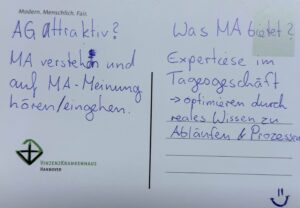 Modern. Menschlich. Fair.
AG attraktiv?
MA verstehen und
auf MA-Meinung
hören/eingehen.
VINZENZKRANKENHAUS
HANNOVER
Was MA bietet?
Expertiese im
Tagesgeschäft
→ optimieren durch
reales Wissen zu
Abläufen & Prozessen